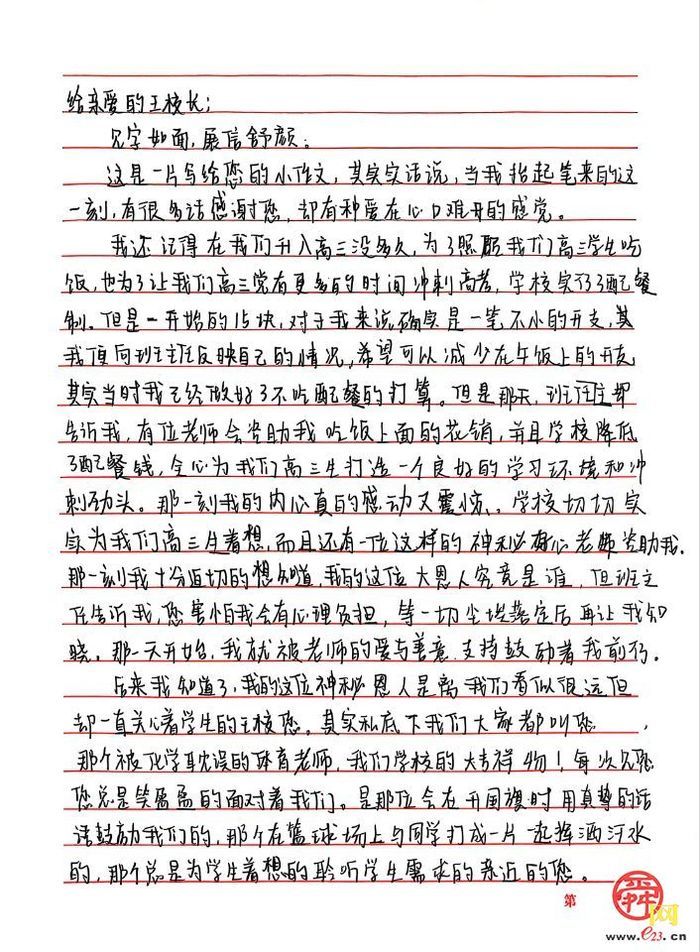 给亲爱的王校长：
见字如面，展信舒颜。
这是一片写给您的小作文，其实实话说，当我抬起笔来的这
一刻，有很多话感谢您，却有种爱在心口难开的感觉。
我还记得在我们升入高三没多久，为了照顾我们高三学生吃
饭，也为了让我们高三党有更多的时间冲刺高考，学校实行了配餐
制。但是一开始的15块，对于我来说确实是一笔不小的开支，其
我便向班主任反映自己的情况，希望可以减少在午饭上的开支
其实当时我已经做好了不吃配餐的打算。但是那天，班任主却
告诉我，有位老师会资助我吃饭上面的花销，并且学校降低
了配餐钱，全心为我们高三生打造一个良好的学习环境和冲
刺劲头。那一刻我的内心真的感动又震惊。学校切切实
实为我们高三生着想，而且还有一位这样的神秘好心老师资助我.
那一刻我十分迫切的想知道，我的这位大恩人究竟是谁，但班主
任告诉我，您害怕我会有心理负担，等一切尘埃落定后再让我知
晓。那一天开始，我就被老师的爱与善意支持鼓动着我前行.
后来我知道了，我的这位神秘恩人是离我们看似很远但
却一直关心着学生的王校您。其实私底下我们大家都叫您，
那个被化学耽误的体育老师，我们学校的大吉祥物！每次见您
您总是笑盈盈的面对着我们。是那位会在升国旗时用真挚的话
话鼓励我们的，那个在篮球场上与同学打成一片一起挥洒汗水
的，那个总是为学生着想的聆听学生需求的亲近的您。
第
舜网
www.e23.cn